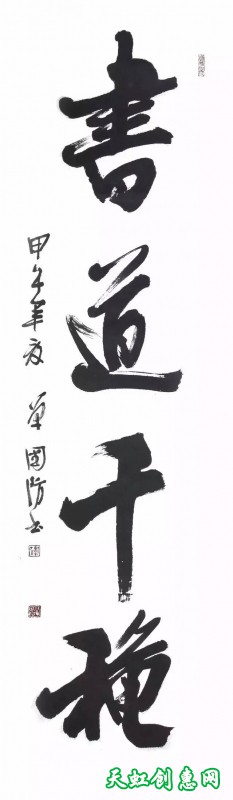 書道千穐
甲午年夏 單國防书
天虹创惠网